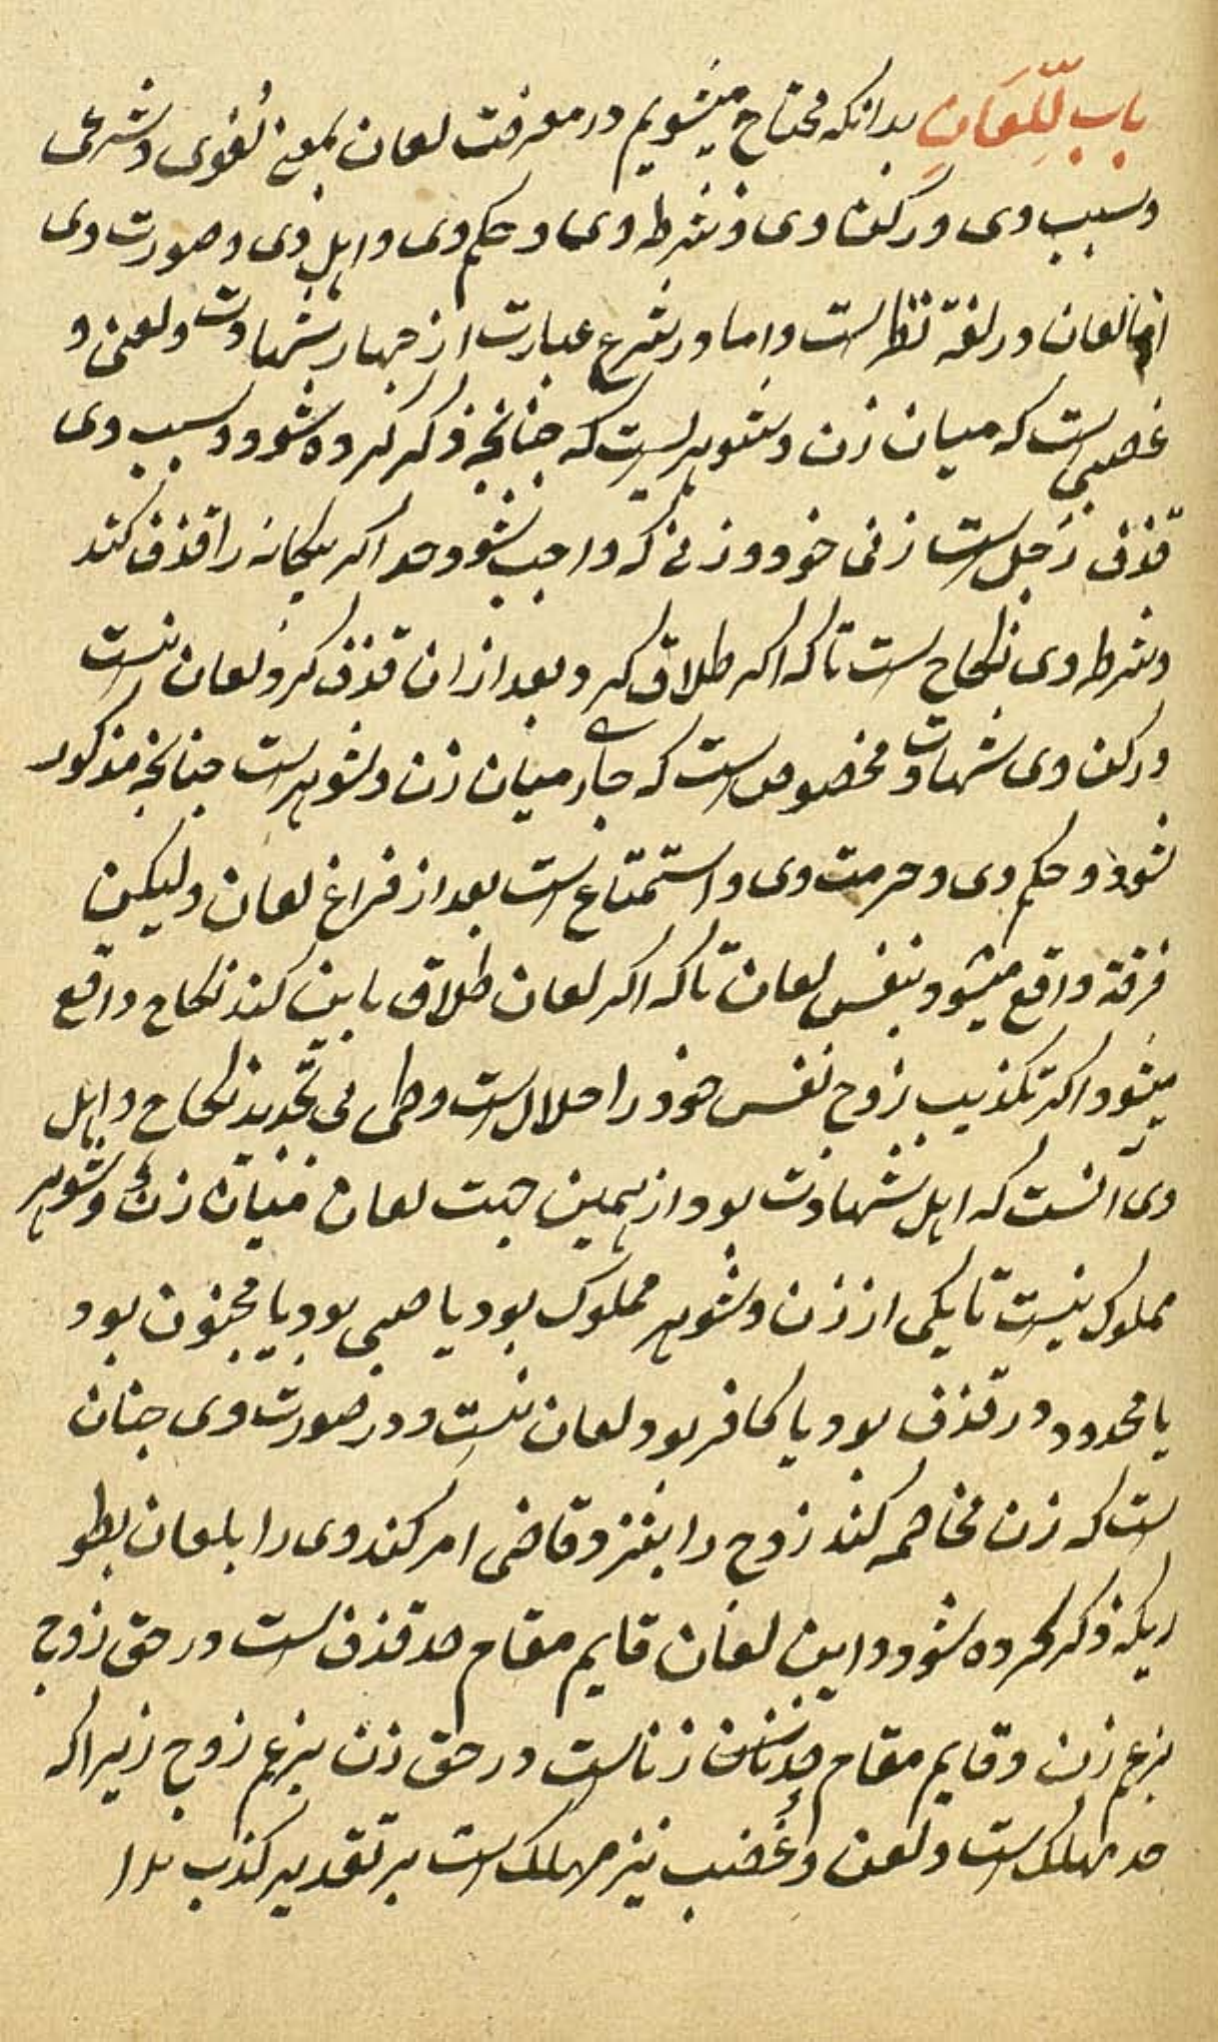 باب اللِّعَانِ بدانکه محتاج میشویم در معرفت لعان بمعنی لُغوی و شرعی
و سبب وی و رکن وی و شرط وی و حکم وی و اهل وی و صورت وی
اما لعان در لغة است و اما در شرع عبارت از چهار شهادت و لعنی و
غضبی ست که میان زن و شوهر یست که چنانچه ذکر کرده شود و سبب وی
قذف رَجل است زنی خود و زنی که واجب شود حد اکر بیکانه را قذف کند
و شرط وی نکاح ست تا که اکر طلاق کرد و بعد از ان قذف کرد لعان نیست
و رکن وی شهادت مخصوص است که جاری میان زن و شوهر ست چنانچه مذکور
شود و حکم وی و حرمت وی و استمتاع است بعد از فراغ لعان ولیکن
فرقة واقع میشود بنفس لعان تا که اکر لعان طلاق باین کند نکاح واقع
میشود اکر تکذیب زوج نفس خود را حلال است وطی بی تجدید نکاح و اهل
وی آنست که اهل شهادت بود از همین جهت لعان میان زن و شوهر
مملوک نیست تا یکی از زن و شوهر مملوک بود یا صبی بود یا مجنون بود
یا محدود در قذف بود یا کافر بود لعان نیست و در صورت وی چنان
ست که زن مخاصمه کند زوج را بنزد قاضی امر کند وی را بلعان بطو
ریکه ذکر کرده شود و این لعان قایم مقام حد قذف است در حق زوج
بزعم زن و قایم مقام حد زناست در حق زن بزعم زوج زیرا که
حد مهلک است و لعن و غضب نیز مهلک است بر تقدیر کذب